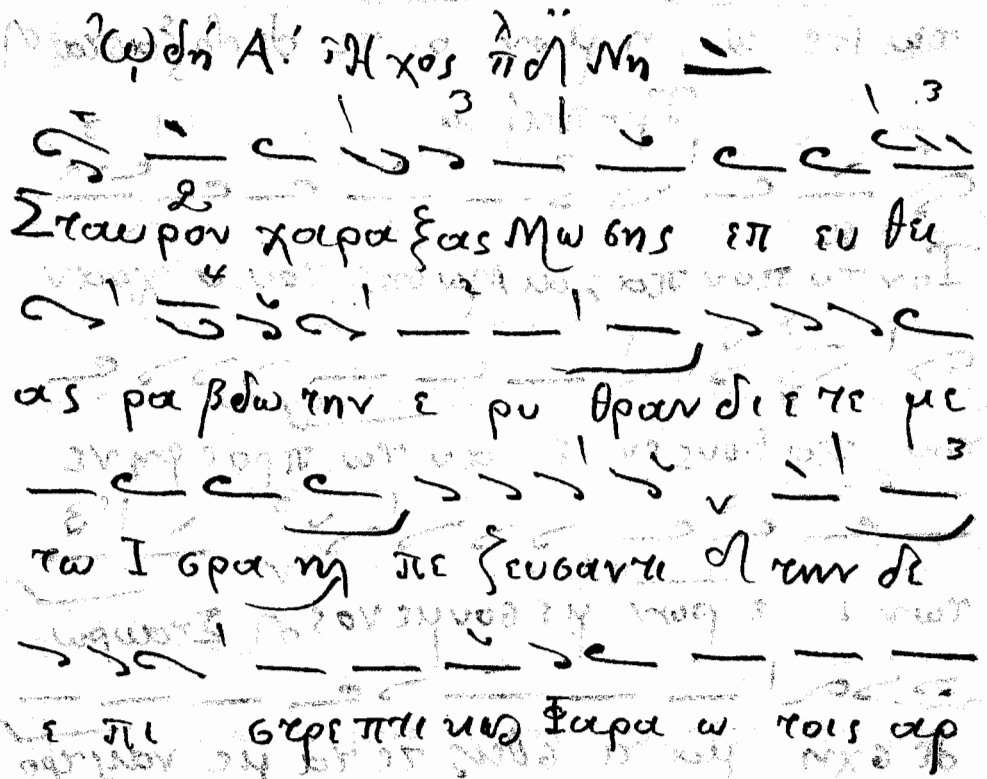 ᾨδή Α΄. Ἦχος πλ δ̈ Νη
Σταυρον χαραξας Μωσης επ ευ θει
ας ρα βδω την ε ρυ θραν δι ε τε με
τω Ι σρα ηλ πε ζευσαντι την δε
ε πι στρε πτι κως Φαρα ω τοις αρ